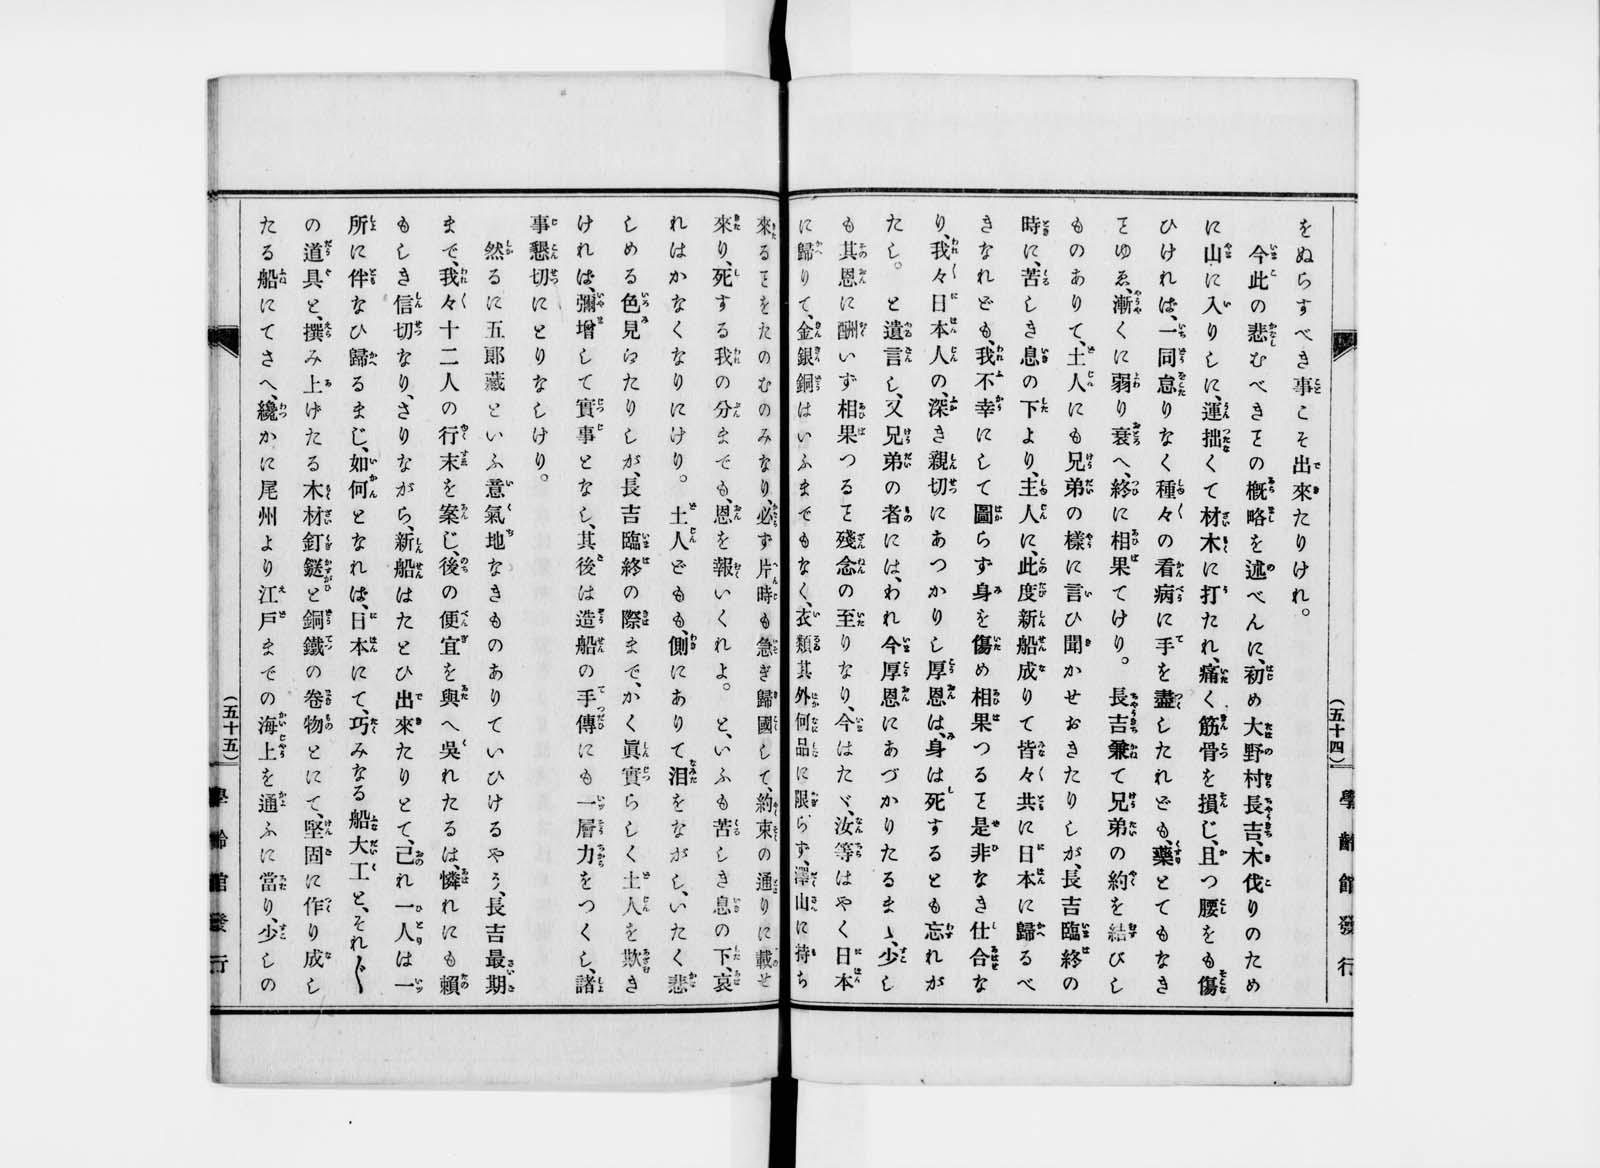 をぬらすべき事こそ出來たりけれ。
今此の悲むべきヿの槪略を述べんに、初め大野村長吉、木伐りのため
に山に入りしに、運拙くて材木に打たれ、痛く筋骨を損じ、且つ腰をも傷
ひけれは、一同怠りなく種々の看病に手を盡したれども、藥とてもなき
ヿゆゑ、漸くに弱り衰へ、終に相果てけり。長吉兼て兄弟の約を結びし
ものありて、土人にも兄弟の樣に言ひ聞かせおきたりしが、長吉臨終の
時に、苦しき息の下より、主人に、此度新船成りて皆々共に日本に歸るべ
きなれども、我不幸にして圖らず身を傷め相果つるヿ是非なき仕合な
り、我々日本人の、深き親切にあつかりし厚恩は、身は死するとも忘れが
たし。と遺言し、又兄弟の者には、われ今厚恩にあづかりたるまゝ、少し
も其恩に酬いず相果つるヿ殘念の至りなり、今はたヾ、汝等はやく日本
に歸りて、金銀銅はいふまでもなく、衣類其外何品に限らず、澤山に持ち
(五十四)
學齡館發行
來るヿをたのむのみなり、必ず片時も急ぎ歸國して、約束の通りに載せ
來り、死する我の分までも、恩を報いくれよ。と、いふも苦しき息の下、哀
れはかなくなりにけり。土人どもも、側にありて泪をながし、いたく悲
しめる色見ゐたりしが、長吉臨終の際まで、かく眞實らしく土人を欺き
けれは、彌增して實事となし、其後は造船の手傳にも一層力をつくし、諸
事懇切にとりなしけり。
然るに五郞藏といふ意氣地なきものありていひけるやう、長吉最期
まで、我々十二人の行末を案じ、後の便宜を與へ吳れたるは、憐れにも賴
もしき信切なり、さりながら、新船はたとひ出來たりとて、己れ一人は一
所に伴なひ歸るまじ、如何となれは、日本にて、巧みなる船大工と、それ〴〵
の道具と、撰み上げたる木材釘鎹と銅鐵の卷物とにて、堅固に作り成し
たる船にてさへ、纔かに尾州より江戶までの海上を通ふに當り、少しの
(五十五)
學齡館發行